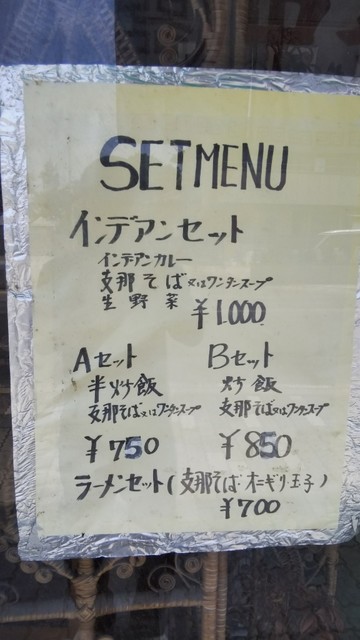 SETMENU
インデアンセット
インデアンカレー
支那そば又はワンタンスープ
生野菜
¥1.000
Aセット Bセット
半炒飯 炒飯
支那そば又はワンタンスープ 支那そば又はワンタンスープ
¥750 ¥850
ラーメンセット(支那そば・オニギリ・玉子)
¥700